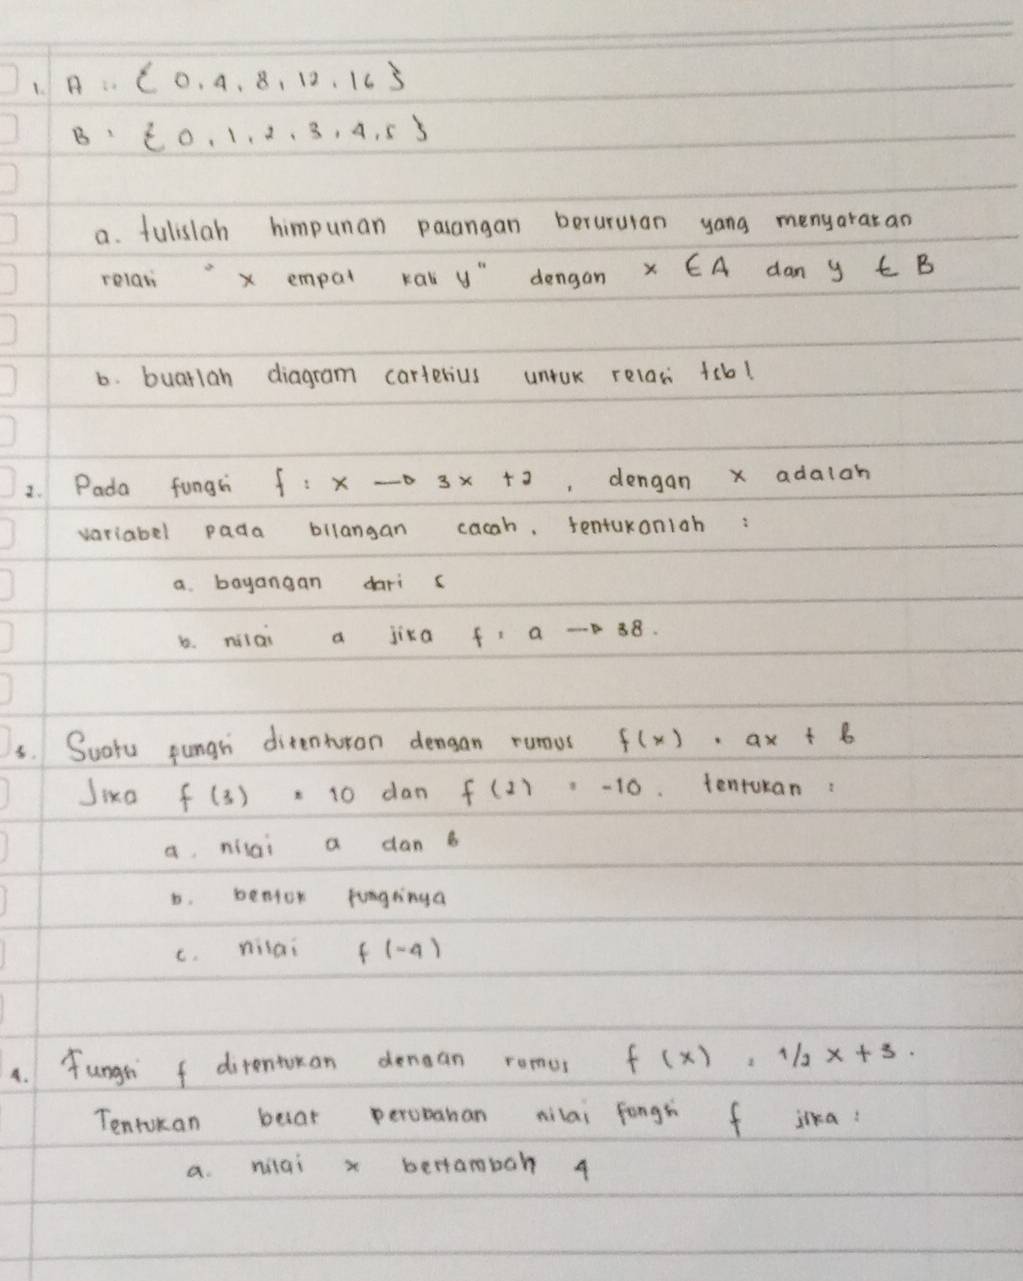 1. A = { 0, 4, 8, 12, 16 }
B = { 0, 1, 2, 3, 4, 5 }
a. tulislah himpunan pasangan berurutan yang menyatakan
relasi " x empat kali y " dengan x ∈ A dan y ∈ B
b. buatlah diagram cartesius untuk relasi tsb!
2. Pada fungsi f : x → 3x + 2 , dengan x adalah
variabel pada bilangan cacah. tentukanlah :
a. bayangan dari 5
b. nilai a jika f : a → 38.
3. Suatu fungsi ditentukan dengan rumus f(x) = ax + b
Jika f (3) = 10 dan f (2) = -10. tentukan :
a. nilai a dan b
b. bentuk fungsinya
c. nilai f (-4)
4. Fungsi f ditentukan dengan rumus f (x) = 1/2 x + 3.
Tentukan besar perubahan nilai fungsi f jika :
a. nilai x bertambah 4